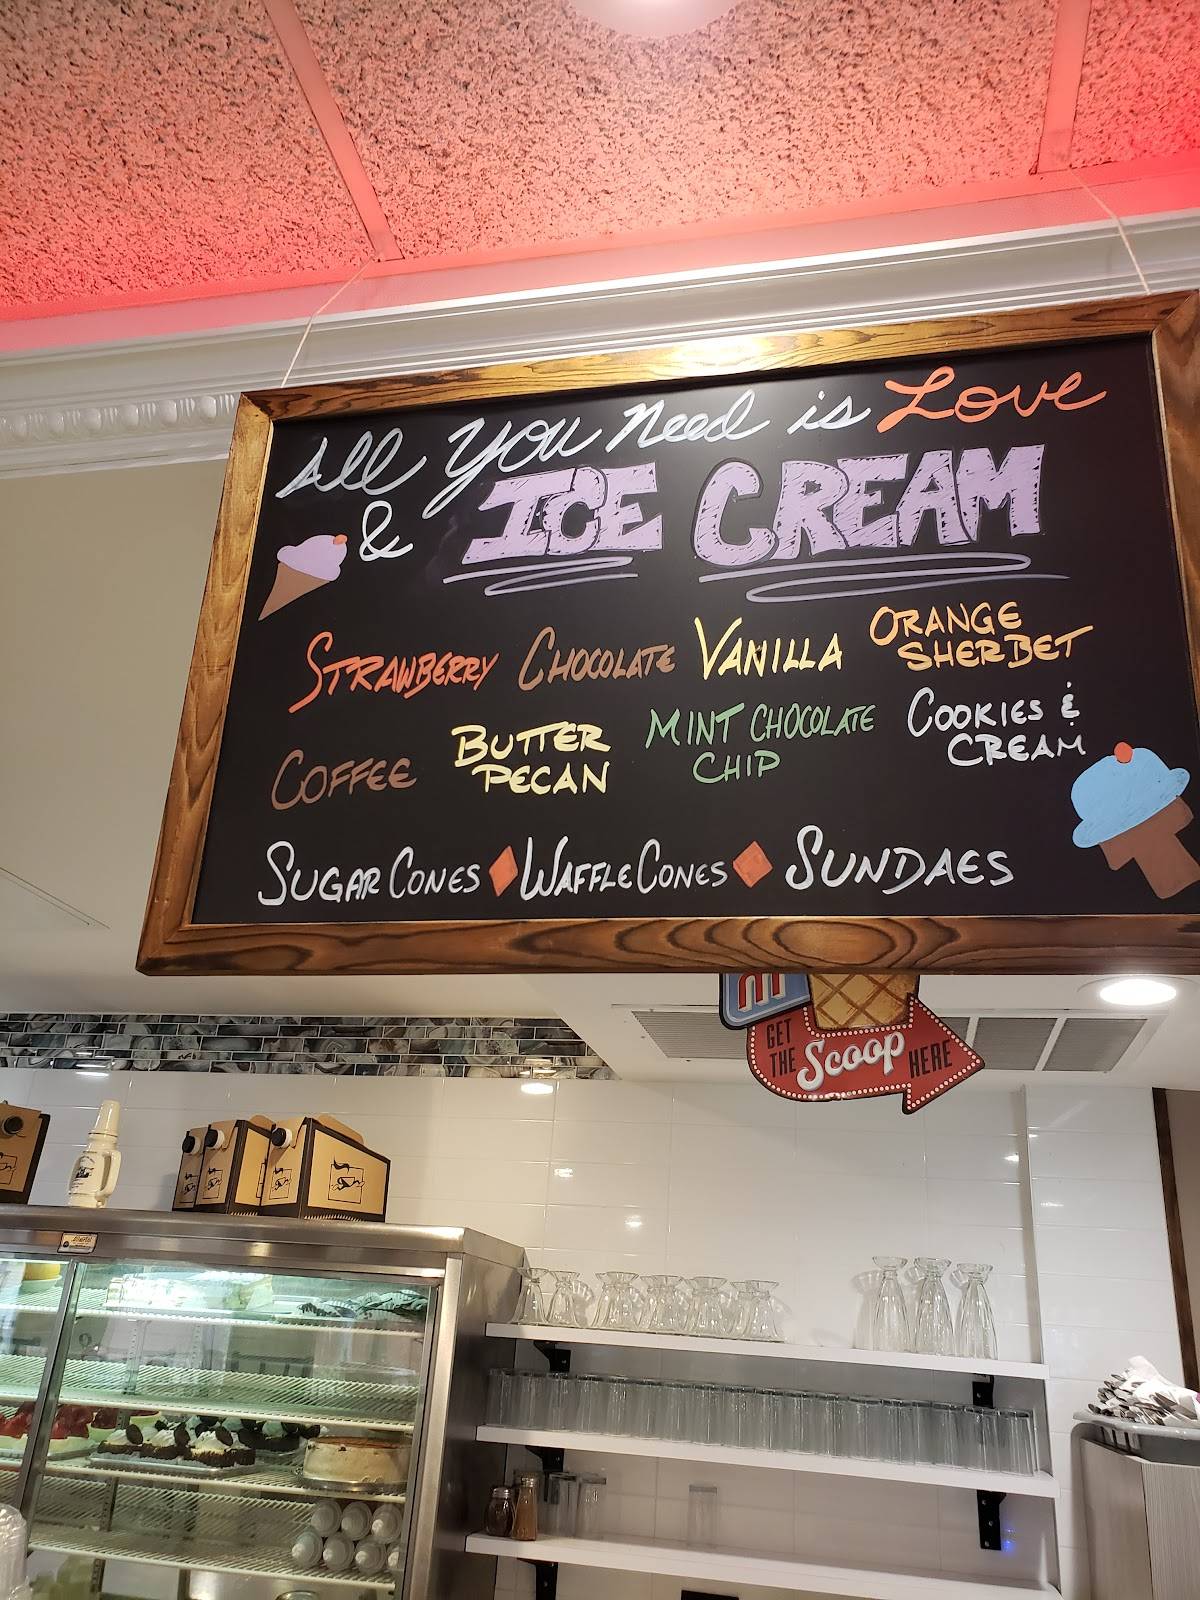 All You Need is Love
& ICE CREAM
STRAWBERRY CHOCOLATE VANILLA ORANGE
SHERBET
COFFEE BUTTER
PECAN
MINT CHOCOLATE
CHIP
COOKIES &
CREAM
SUGAR CONES WAFFLE CONES SUNDAES
GET
THE Scoop HERE